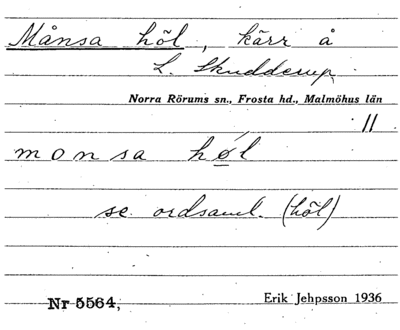 Månsa höl, kärr å
L. Skudderup
Norra Rörums sn., Frosta hd., Malmöhus län
11
monsa høl
se ordsaml. (höl)
Nr 5564,
Erik Jehpsson 1936